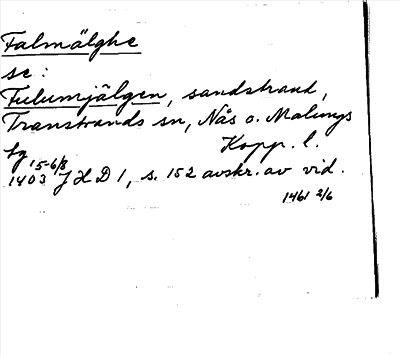 Falmälghe
se:
Fulumjälgen, sandstrand,
Transtrands sn, Nås o. Malungs
tg Kopp. l.
1403 15-6/8 J H D 1, s. 152 avskr. av vid.
1461 2/6